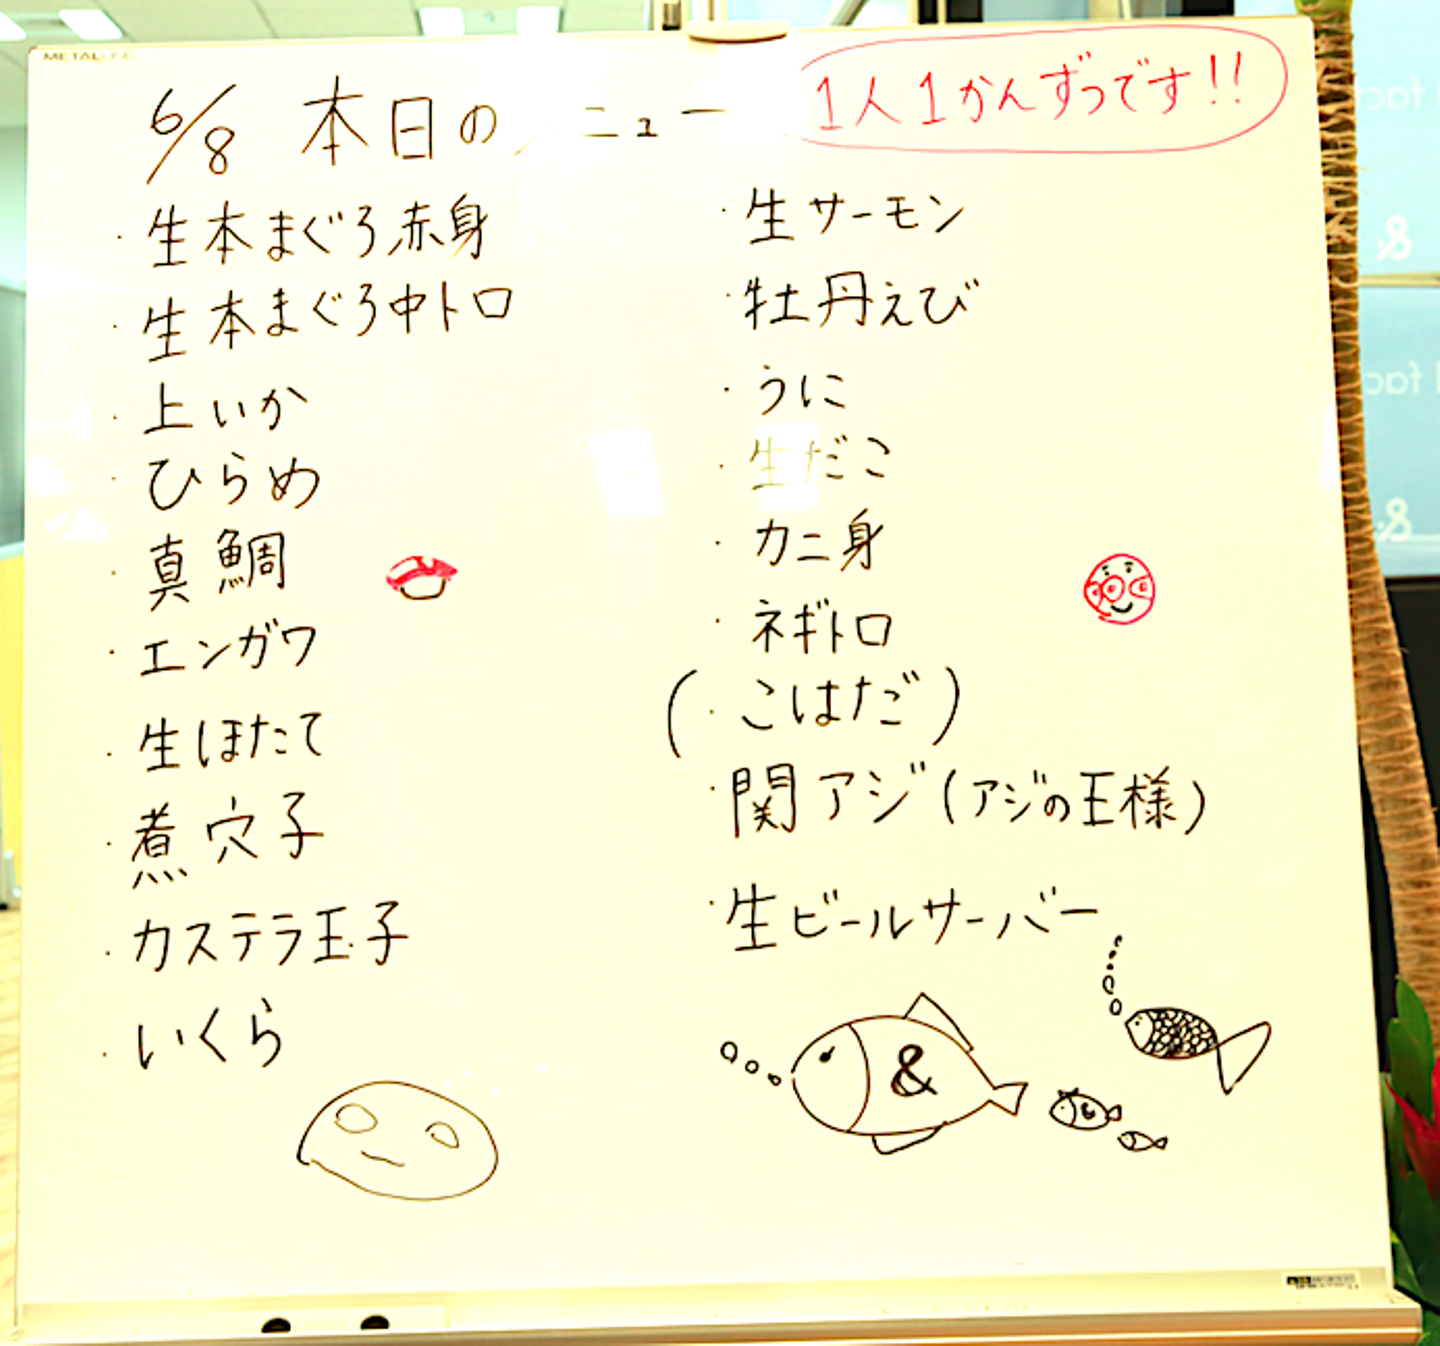 METAL
6/8 本日のメニュー
1人1かんずつです!!
・生本まぐろ赤身
・生本まぐろ中トロ
・上いか
・ひらめ
・真鯛
・エンガワ
・生ほたて
・煮穴子
・カステラ玉子
・いくら
・生サーモン
・牡丹えび
・うに
・生だこ
・カニ身
・ネギトロ
(・こはだ)
・関アジ(アジの王様)
・生ビールサーバー
&
&
&
&